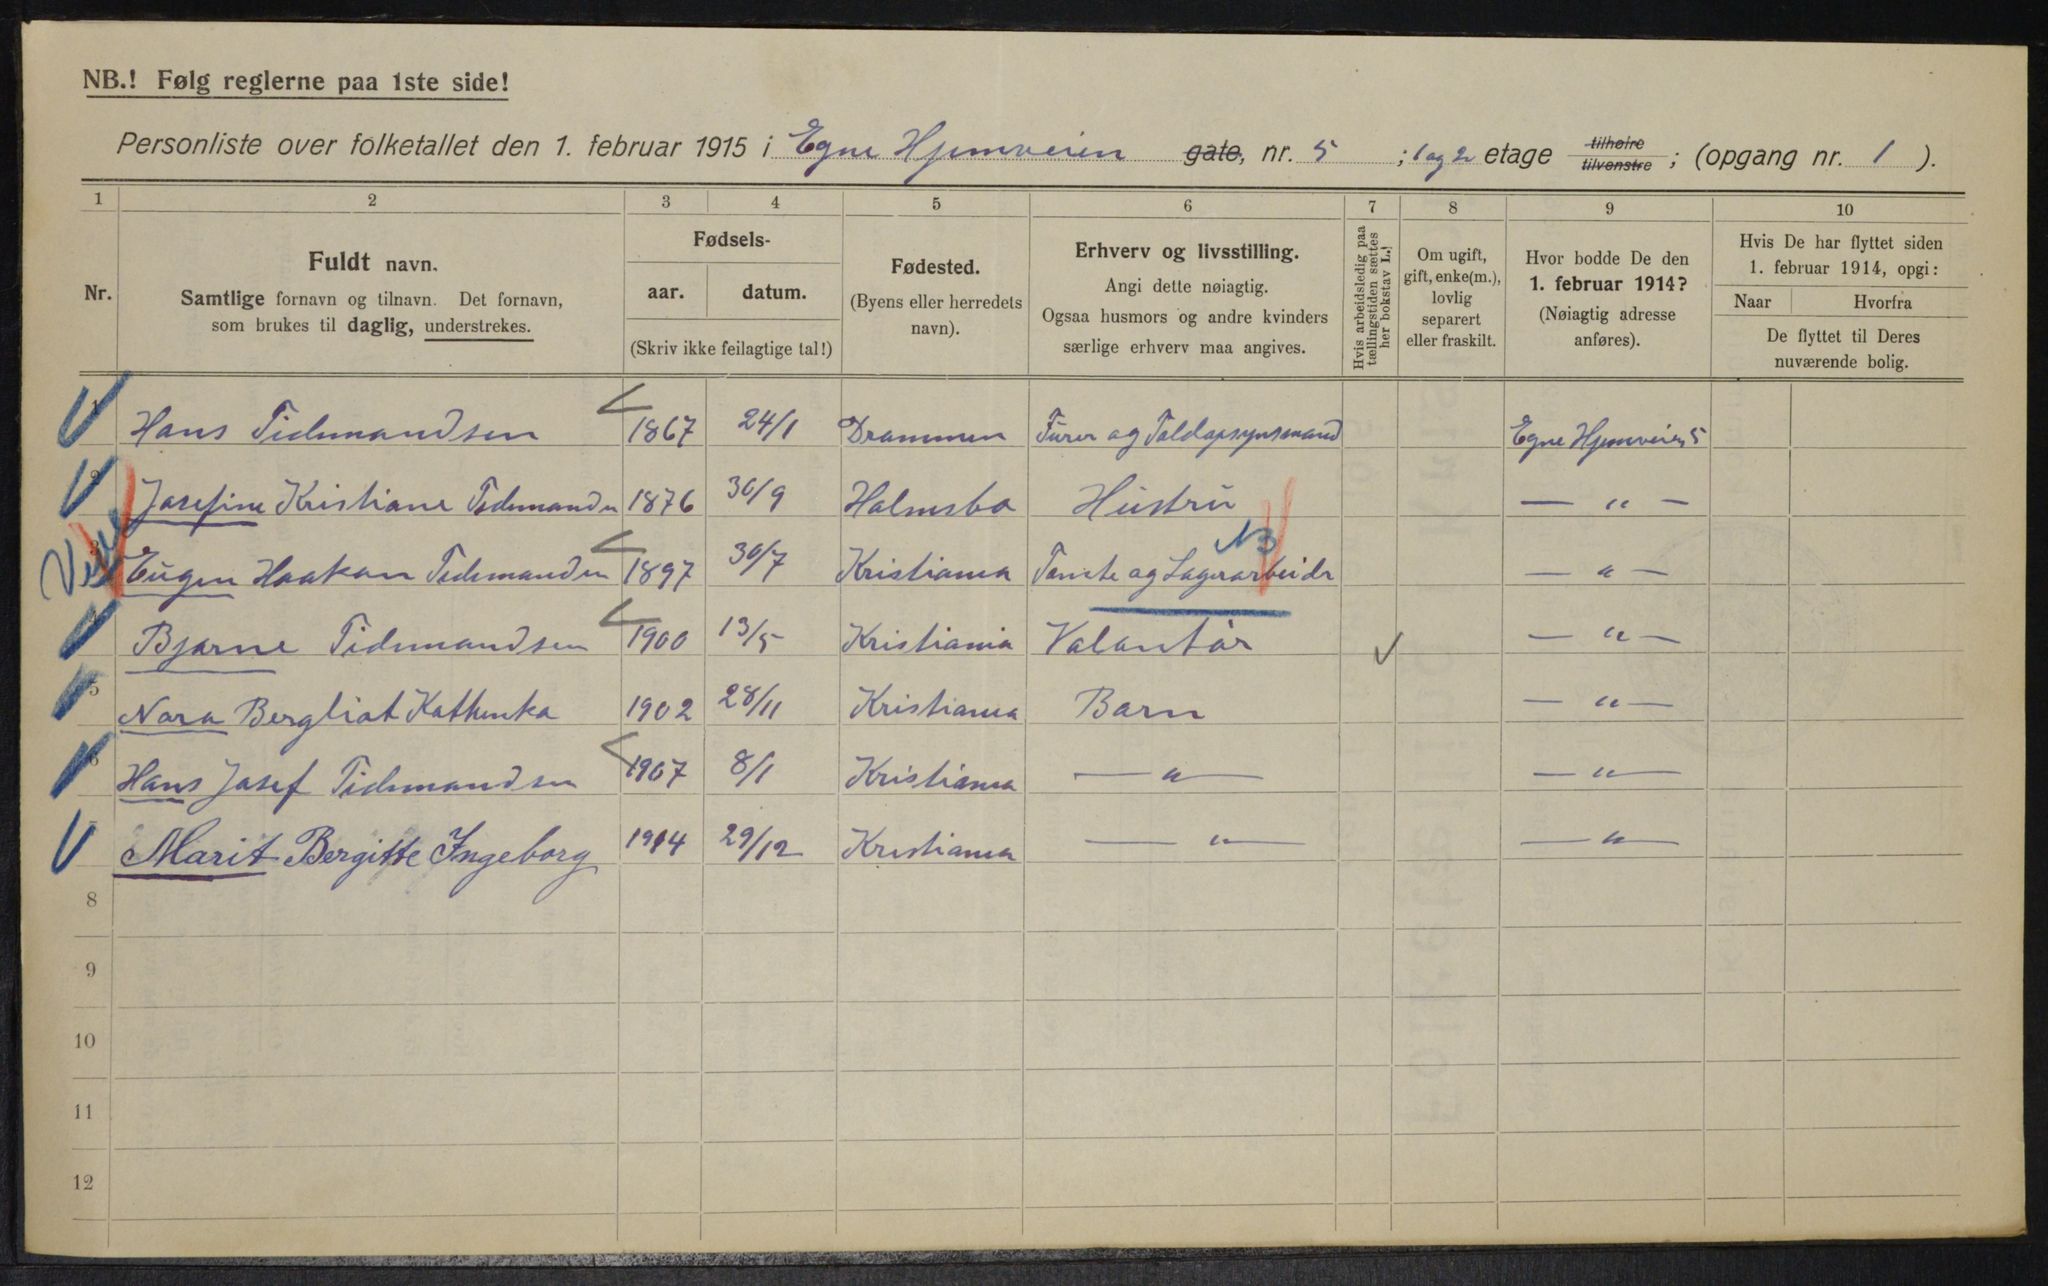 NB.! Følg reglerne paa 1ste side!
Personliste over folketallet den 1. februar 1915 i Egne Hjemveien gate, nr. 5 ; 1 og 2 etage tilhøire tilvenstre ; (opgang nr. 1 ).
1 2 3 4 5 6 7 8 9 10
Nr.
Fuldt navn.
Samtlige fornavn og tilnavn. Det fornavn,
som brukes til daglig, understrekes.
Fødsels-
aar. datum.
(Skriv ikke feilagtige tal!)
Fødested.
(Byens eller herredets
navn).
Erhverv og livsstilling.
Angi dette nøiagtig.
Ogsaa husmors og andre kvinders
særlige erhverv maa angives.
Hvis arbeidsledig paa
tællingstiden sættes
her bokstav L.
Om ugift,
gift, enke(m.),
lovlig
separert
eller fraskilt.
Hvor bodde De den
1. februar 1914?
(Nøiagtig adresse
anføres).
Hvis De har flyttet siden
1. februar 1914, opgi:
Naar Hvorfra
De flyttet til Deres
nuværende bolig.
1 Hans Tidemandsen 1867 24/1 Drammen Fürer og Toldopsynsmand Egne Hjemveien 5
2 Josefine Kristiane Tidemandsen 1876 30/9 Holmsbo Hüstrü — " —
3 Eügen Haakon Tidemandsen 1897 30/7 Kristiania og Lagerarbeider — " —
4 Bjarne Tidemandsen 1900 13/5 Kristiania Volontør — " —
5 Nora Bergliot Kathinka 1902 28/11 Kristiania Barn — " —
6 Hans Josef Tidemandsen 1907 8/1 Kristiania — " — — " —
Marit Bergitte Ingeborg 1914 29/12 Kristiania — " — — " —
8
9
10
11
12